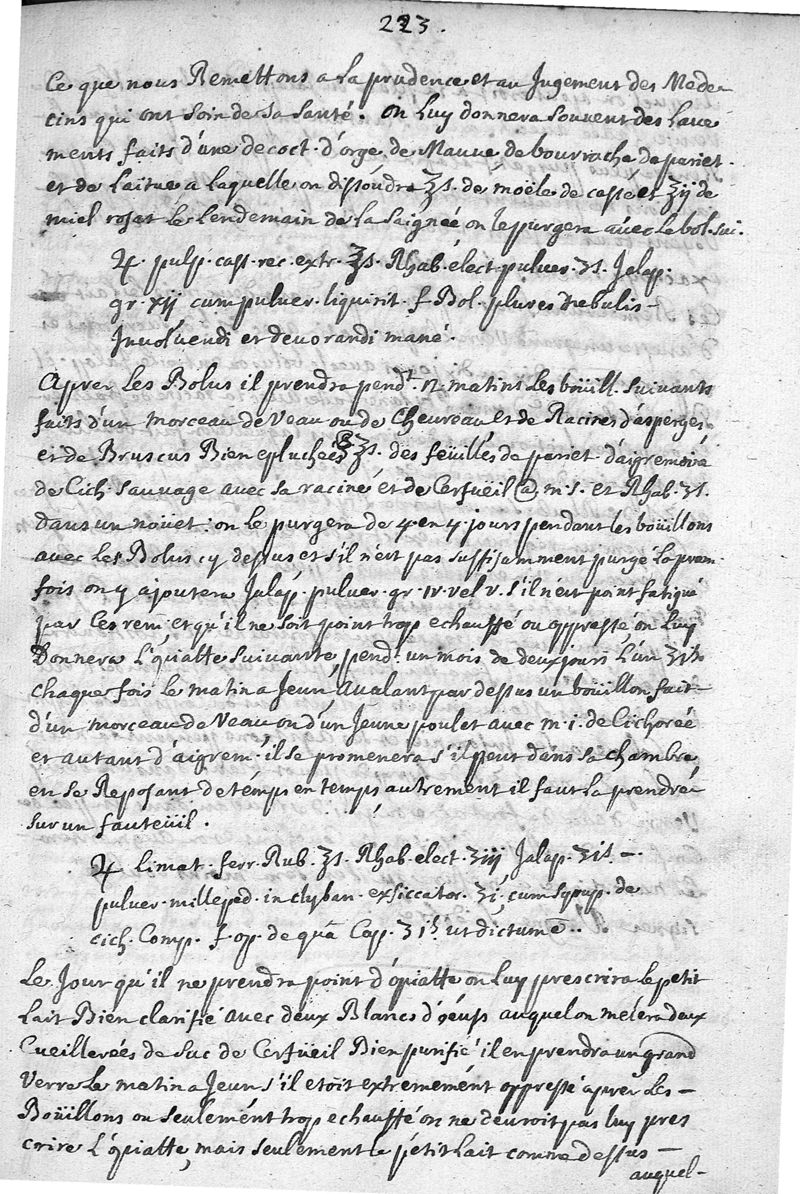 223.
Ce que nous Remettons a La prudence et au Jugement des Mede-
cins qui ont soin de sa santé. on Luy donnera souvent des Lave
ments faits d'une decoct. d'orge, de Mauve de bourrache de pariet.
et de Laitue a Laquelle on dissoudra ℥s. de moële de casse et ℥ij de
miel rosat Le Lendemain de La saignée on le purgera avec le bol. sui.
♃. pulp. cass. rec. extr. ℥s. Rhab. élect. pulver. ʒ1. Jalap.
gr. xij cum pulver. liquirit. f. Bol. plures nebulis
Involvendi et devorandi mané.
Aprer Les Bolus il prendra pendt. n. matins Les boüill. suivants
faits d'un morceau de Veau ou de Chevreau et de Racines d'asperges,
et de Bruscus Bien epluchées ℥s. des feüilles de pariet. d'aigremoine
de Cich. sauvage avec sa racine et de Cerfüeil @. m. s. et Rhab. ʒ1.
dans un noüet: on le purgera de 4 en 4 jours pendant les boüillons
avec les Bolus cy dessus et s'il n'est pas suffisamment purgé la prem.
fois on y ajoutera Jalap. pulver. gr. iv. vel v. s'il n'est point fatigué
par Ces rem. et qu'il ne soit point trop echauffé ou oppressé on Luy
Donnera L'opiatte suivante, pend. un mois de deux jours L'un ʒis
chaque fois le matin a Jeun, avalant par dessus un boüillon fait
d'un morceau de Veau ou d'un Jeune poulet avec m. i. de Cichorée
et autant d'aigrem. il se promenera s'il peut dans sa chambre,
en se Reposant de temps en temps autrement il faut la prendre
sur un fauteüil.
♃ limat. ferr. Rub. ℥s. Rhab. elect. ʒiij Jalap. ʒis.
pulver. milleped. in clyban. exsiccator. ʒi, cum syrup. de
cich. Comp. f. op. de quâ Cap. ʒis ut dictum e..
Le Jour qu'il ne prendra point d'opiatte on Luy prescrira le petit
Lait Bien clarifié avec deux Blancs d'oeufs auquel on mélera deux
Cueillerées de Suc de Cerfüeil Bien purifié il en prendra un grand
Verre le matin a Jeun s'il etoit extremement oppressé aprer Les
Boüillons ou seulement trop echauffé on ne devroit pas luy pres
crire L'opiatte, mais seulement le petit lait comme dessus
auquel-